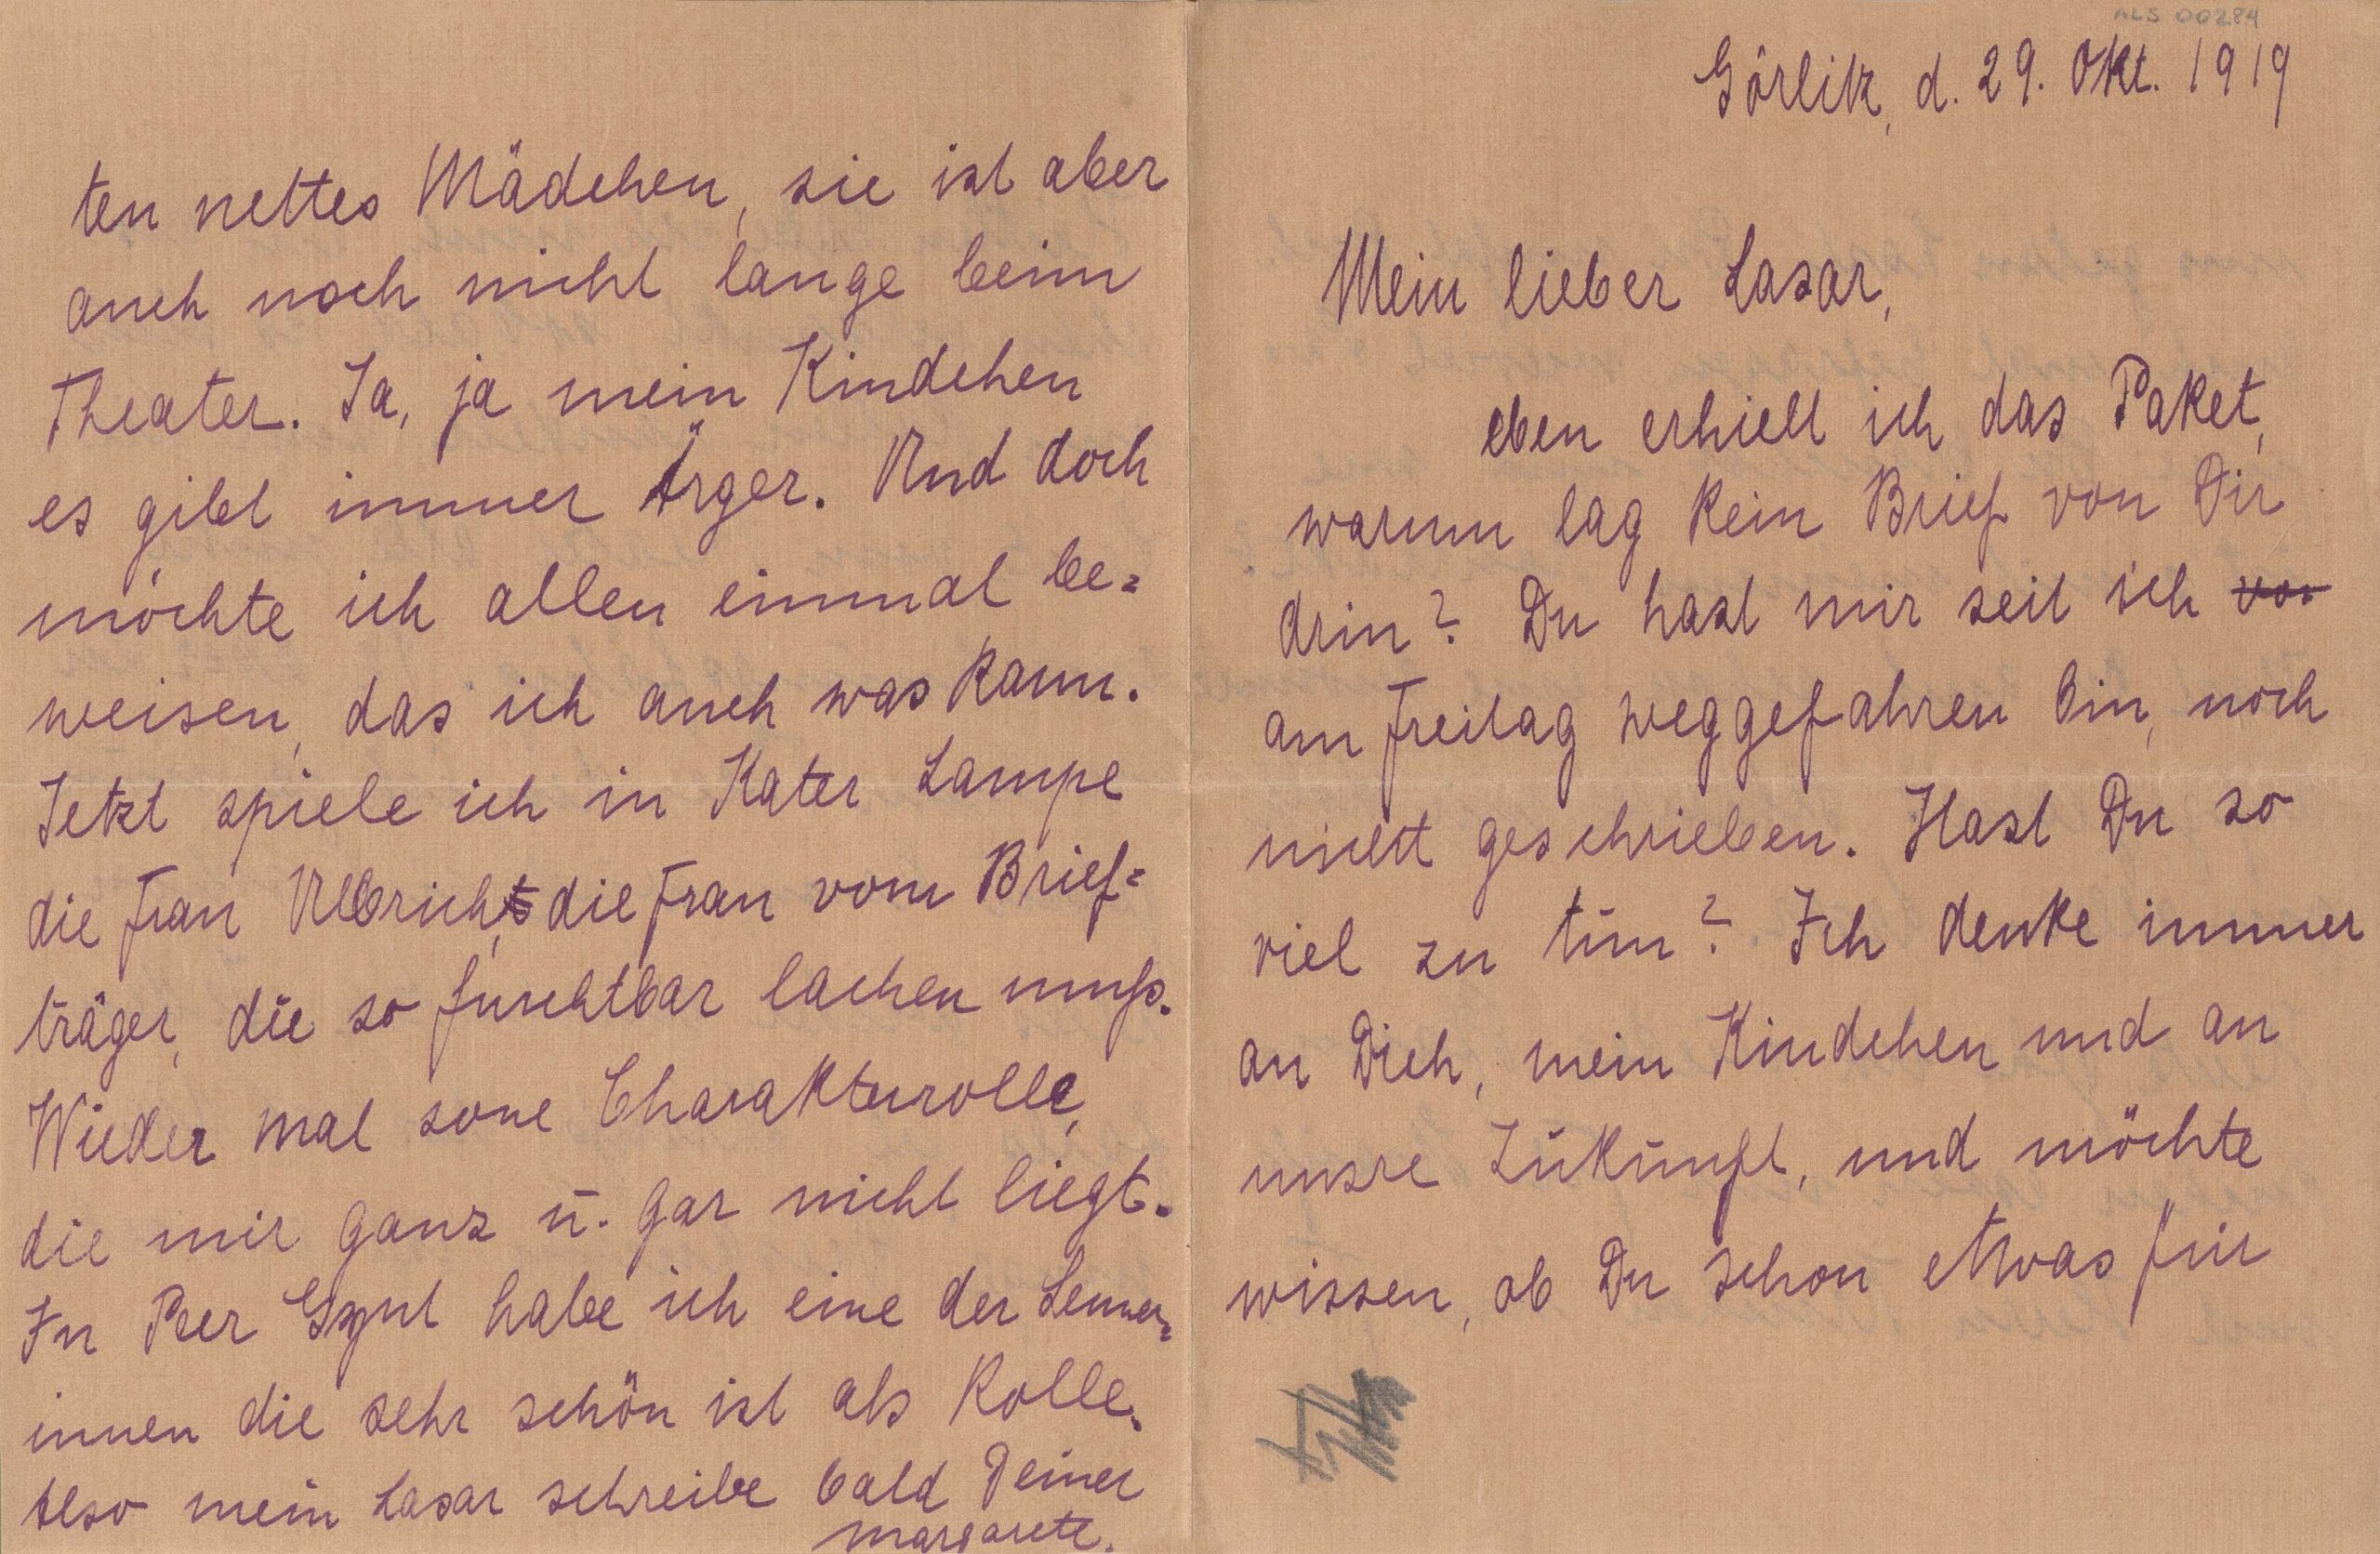 ALS 00284
Görlitz, d. 29. Okt. 1919
Mein lieber Lasar,
eben erhielt ich das Paket,
warum lag kein Brief von Dir
drin? Du hast mir seit ich vor
am Freitag weggefahren bin, noch
nicht geschrieben. Hast Du so
viel zu tun? Ich denke immer
an Dich, mein Kindchen und an
unsre Zukunft, und möchte
wissen, ob Du schon etwas für
ten nettes Mädchen, sie ist aber
auch noch nicht lange beim
Theater. Ja, ja mein Kindchen
es gibt immer Ärger. Und doch
möchte ich allen einmal be=
weisen, das ich auch was kann.
Jetzt spiele ich in Kater Lampe
die Frau Ulbrichts, die Frau vom Brief=
träger, die so furchtbar lachen muß.
Wieder mal sone Charakterrolle,
die mir ganz u. gar nicht liegt.
In Peer Gynt habe ich eine der Senner=
innen die sehr schön ist als Rolle.
Also mein Lasar schreibe bald Deiner
Margarete.